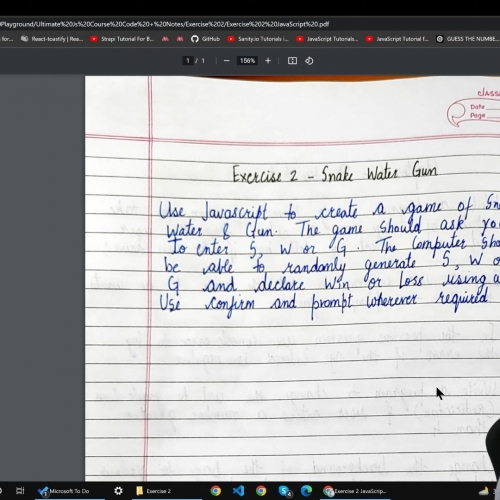 Playground/Ultimate%20Js%20Course%20Code+%20Notes/Exercise%202/Exercise%202%20JavaScript%20.pdf
for...
React-toastify | Rea...
Strapi Tutorial For B...
GitHub
Sanity.io Tutorials i...
JavaScript Tutorials...
JavaScript Tutorial f...
GUESS THE NUMBE...
1 / 1
156%
CLASS
Date
Page
Exercise 2 - Snake Water Gun
Use Javascript to create a game of Sna
Water & Gun. The game should ask yo
to enter S, W or G. The computer Sho
be able to randomly generate S, W o
G and declare Win or Loss using a
Use confirm and prompt wherever required
Microsoft To Do
Exercise 2
Exercise 2 JavaScrip...